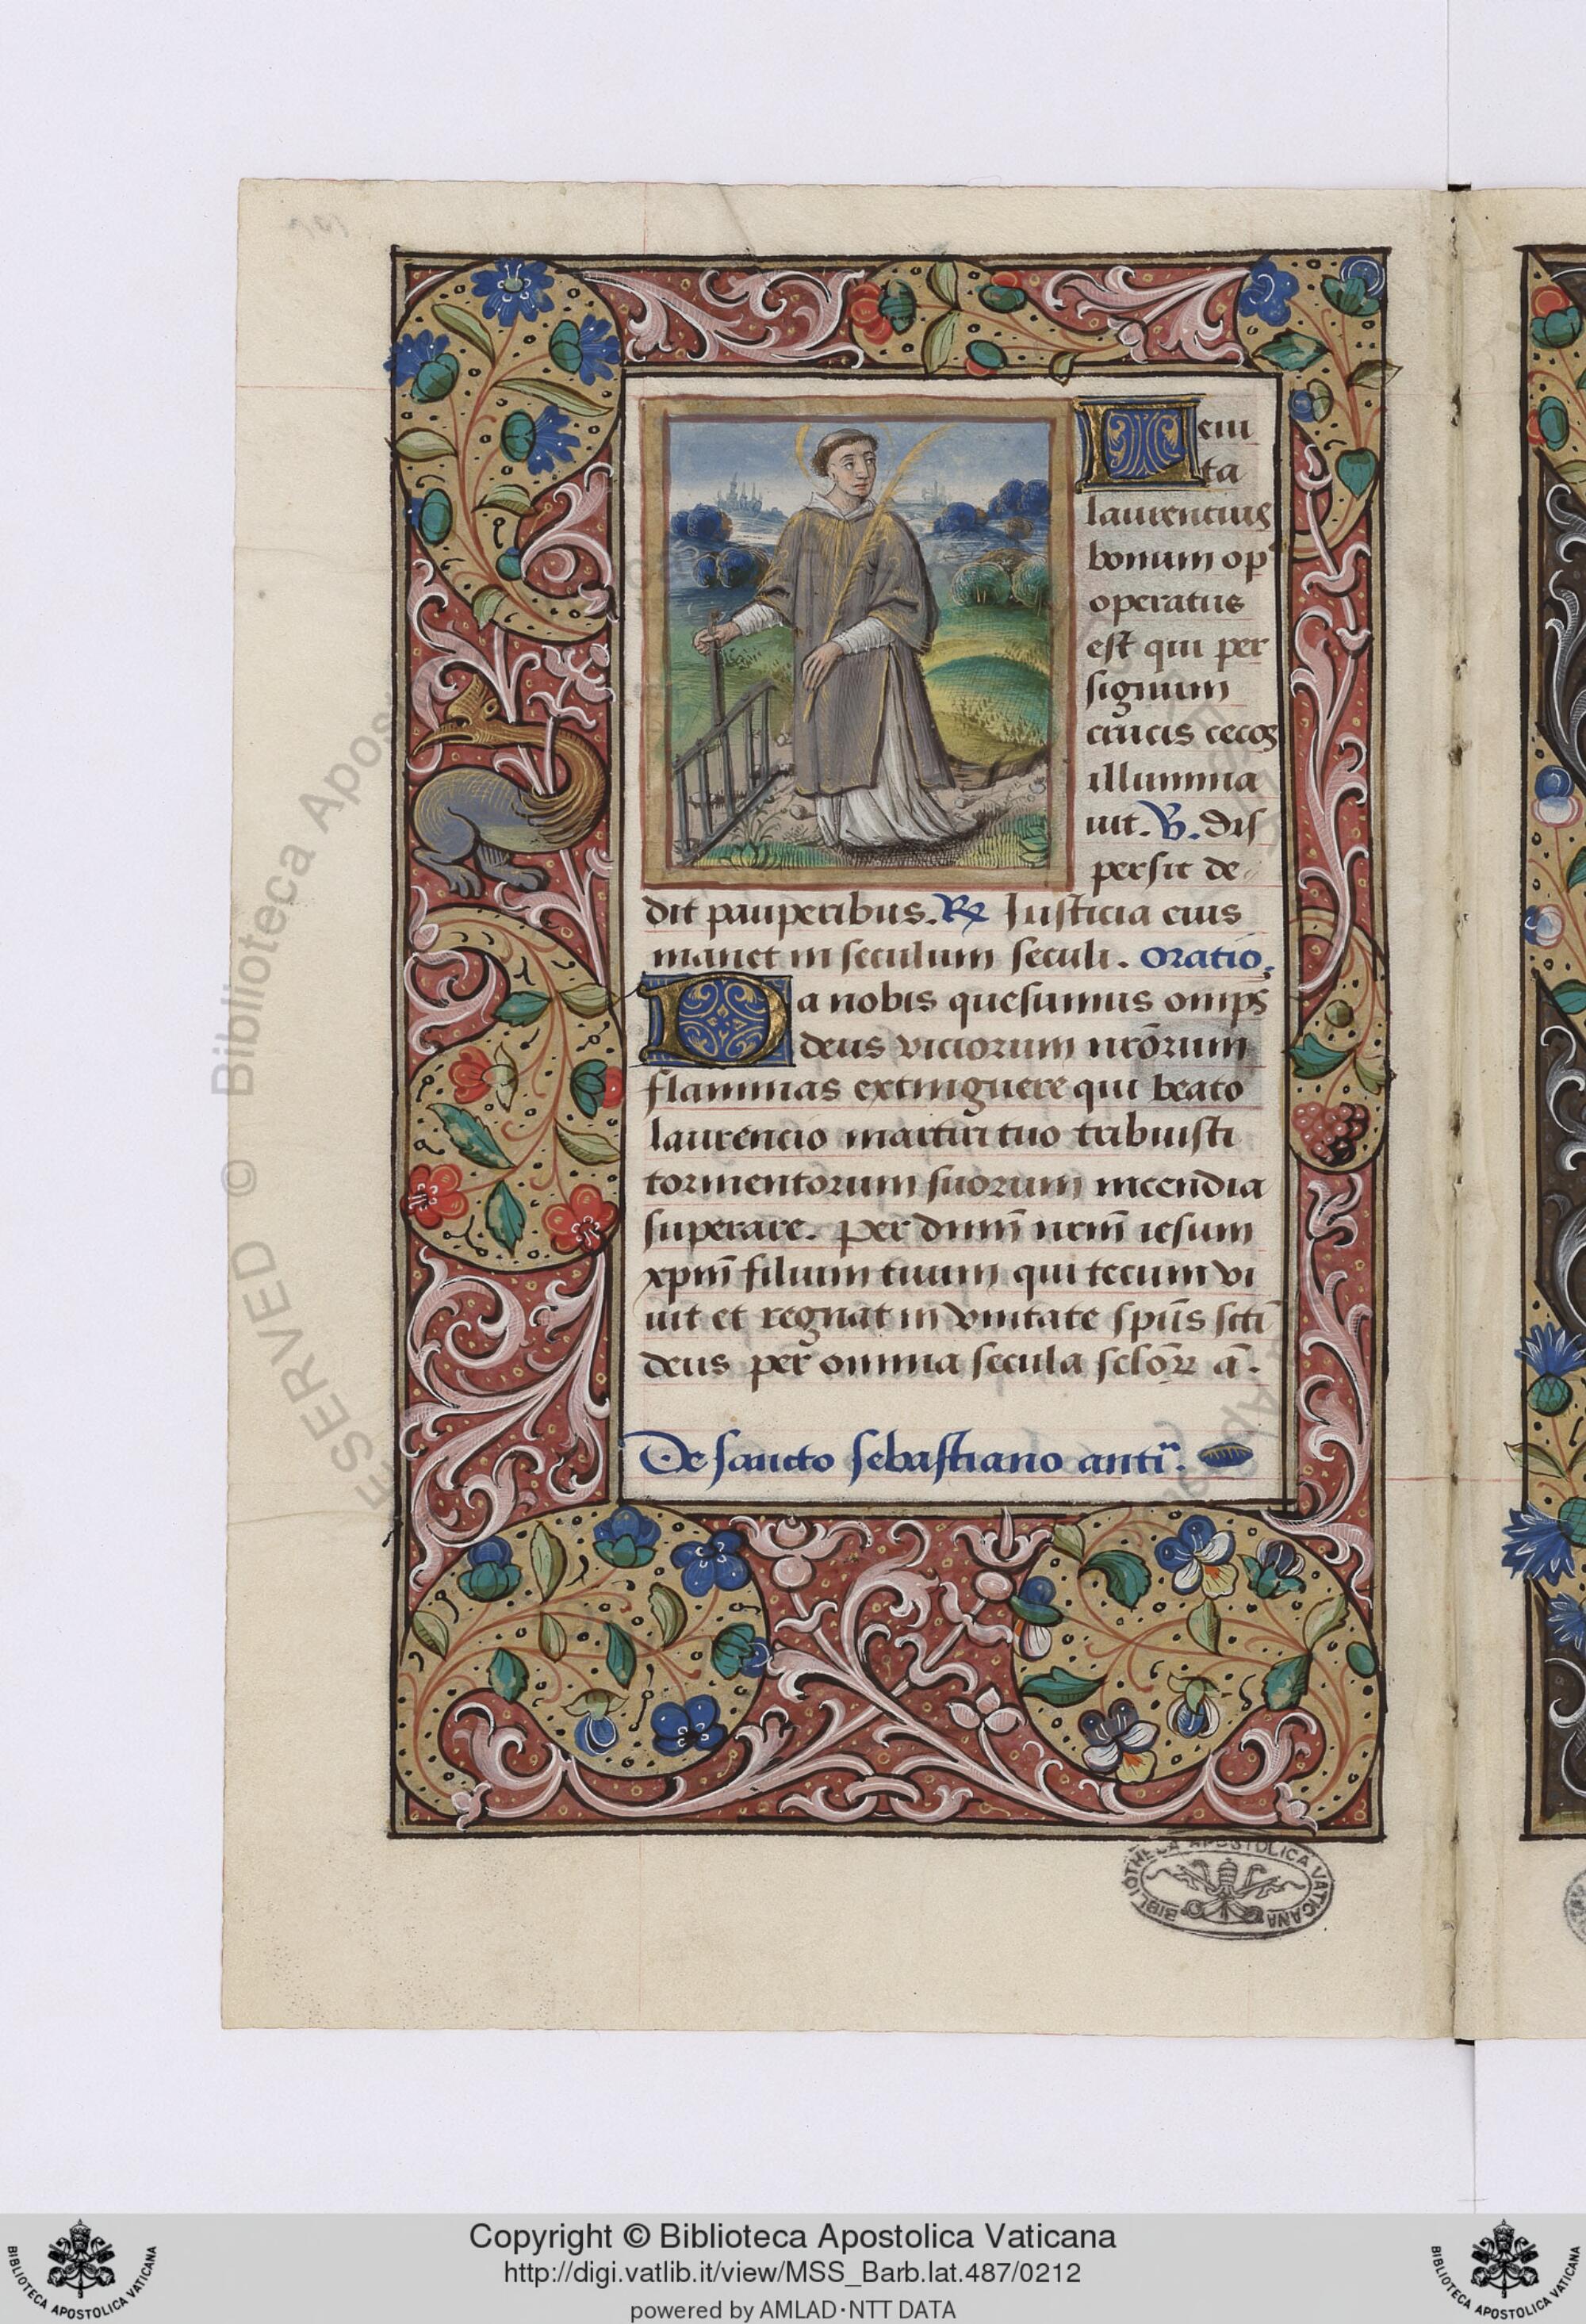 Leui
ta
laurencius
bonum op
operatus
est qui per
signum
crucis cecos
illumina
uit. V. dis
persit de
dit pauperibus. R Iusticia eius
manet in seculum seculi. Oratio.
Da nobis quesumus omps̄
deus viciorum nr̄orum
flammas extinguere qui beato
laurencio martiri tuo tribuisti
tormentorum suorum incendia
superare. Per dnm̄ nrm̄ iesum
xpm̄ filium tuum qui tecum vi
uit et regnat in vnitate spūs scti
deus per omnia secula sclōꝝ ā.
De sancto sebastiano anti.
BIBLIOTHECA APOSTOLICA VATICANA
ESERVED © Biblioteca Apos
Copyright © Biblioteca Apostolica Vaticana
http://digi.vatlib.it/view/MSS_Barb.lat.487/0212
powered by AMLAD·NTT DATA
BIBLIOTECA APOSTOLICA VATICANA
BIBLIOTECA APOSTOLICA VATICANA